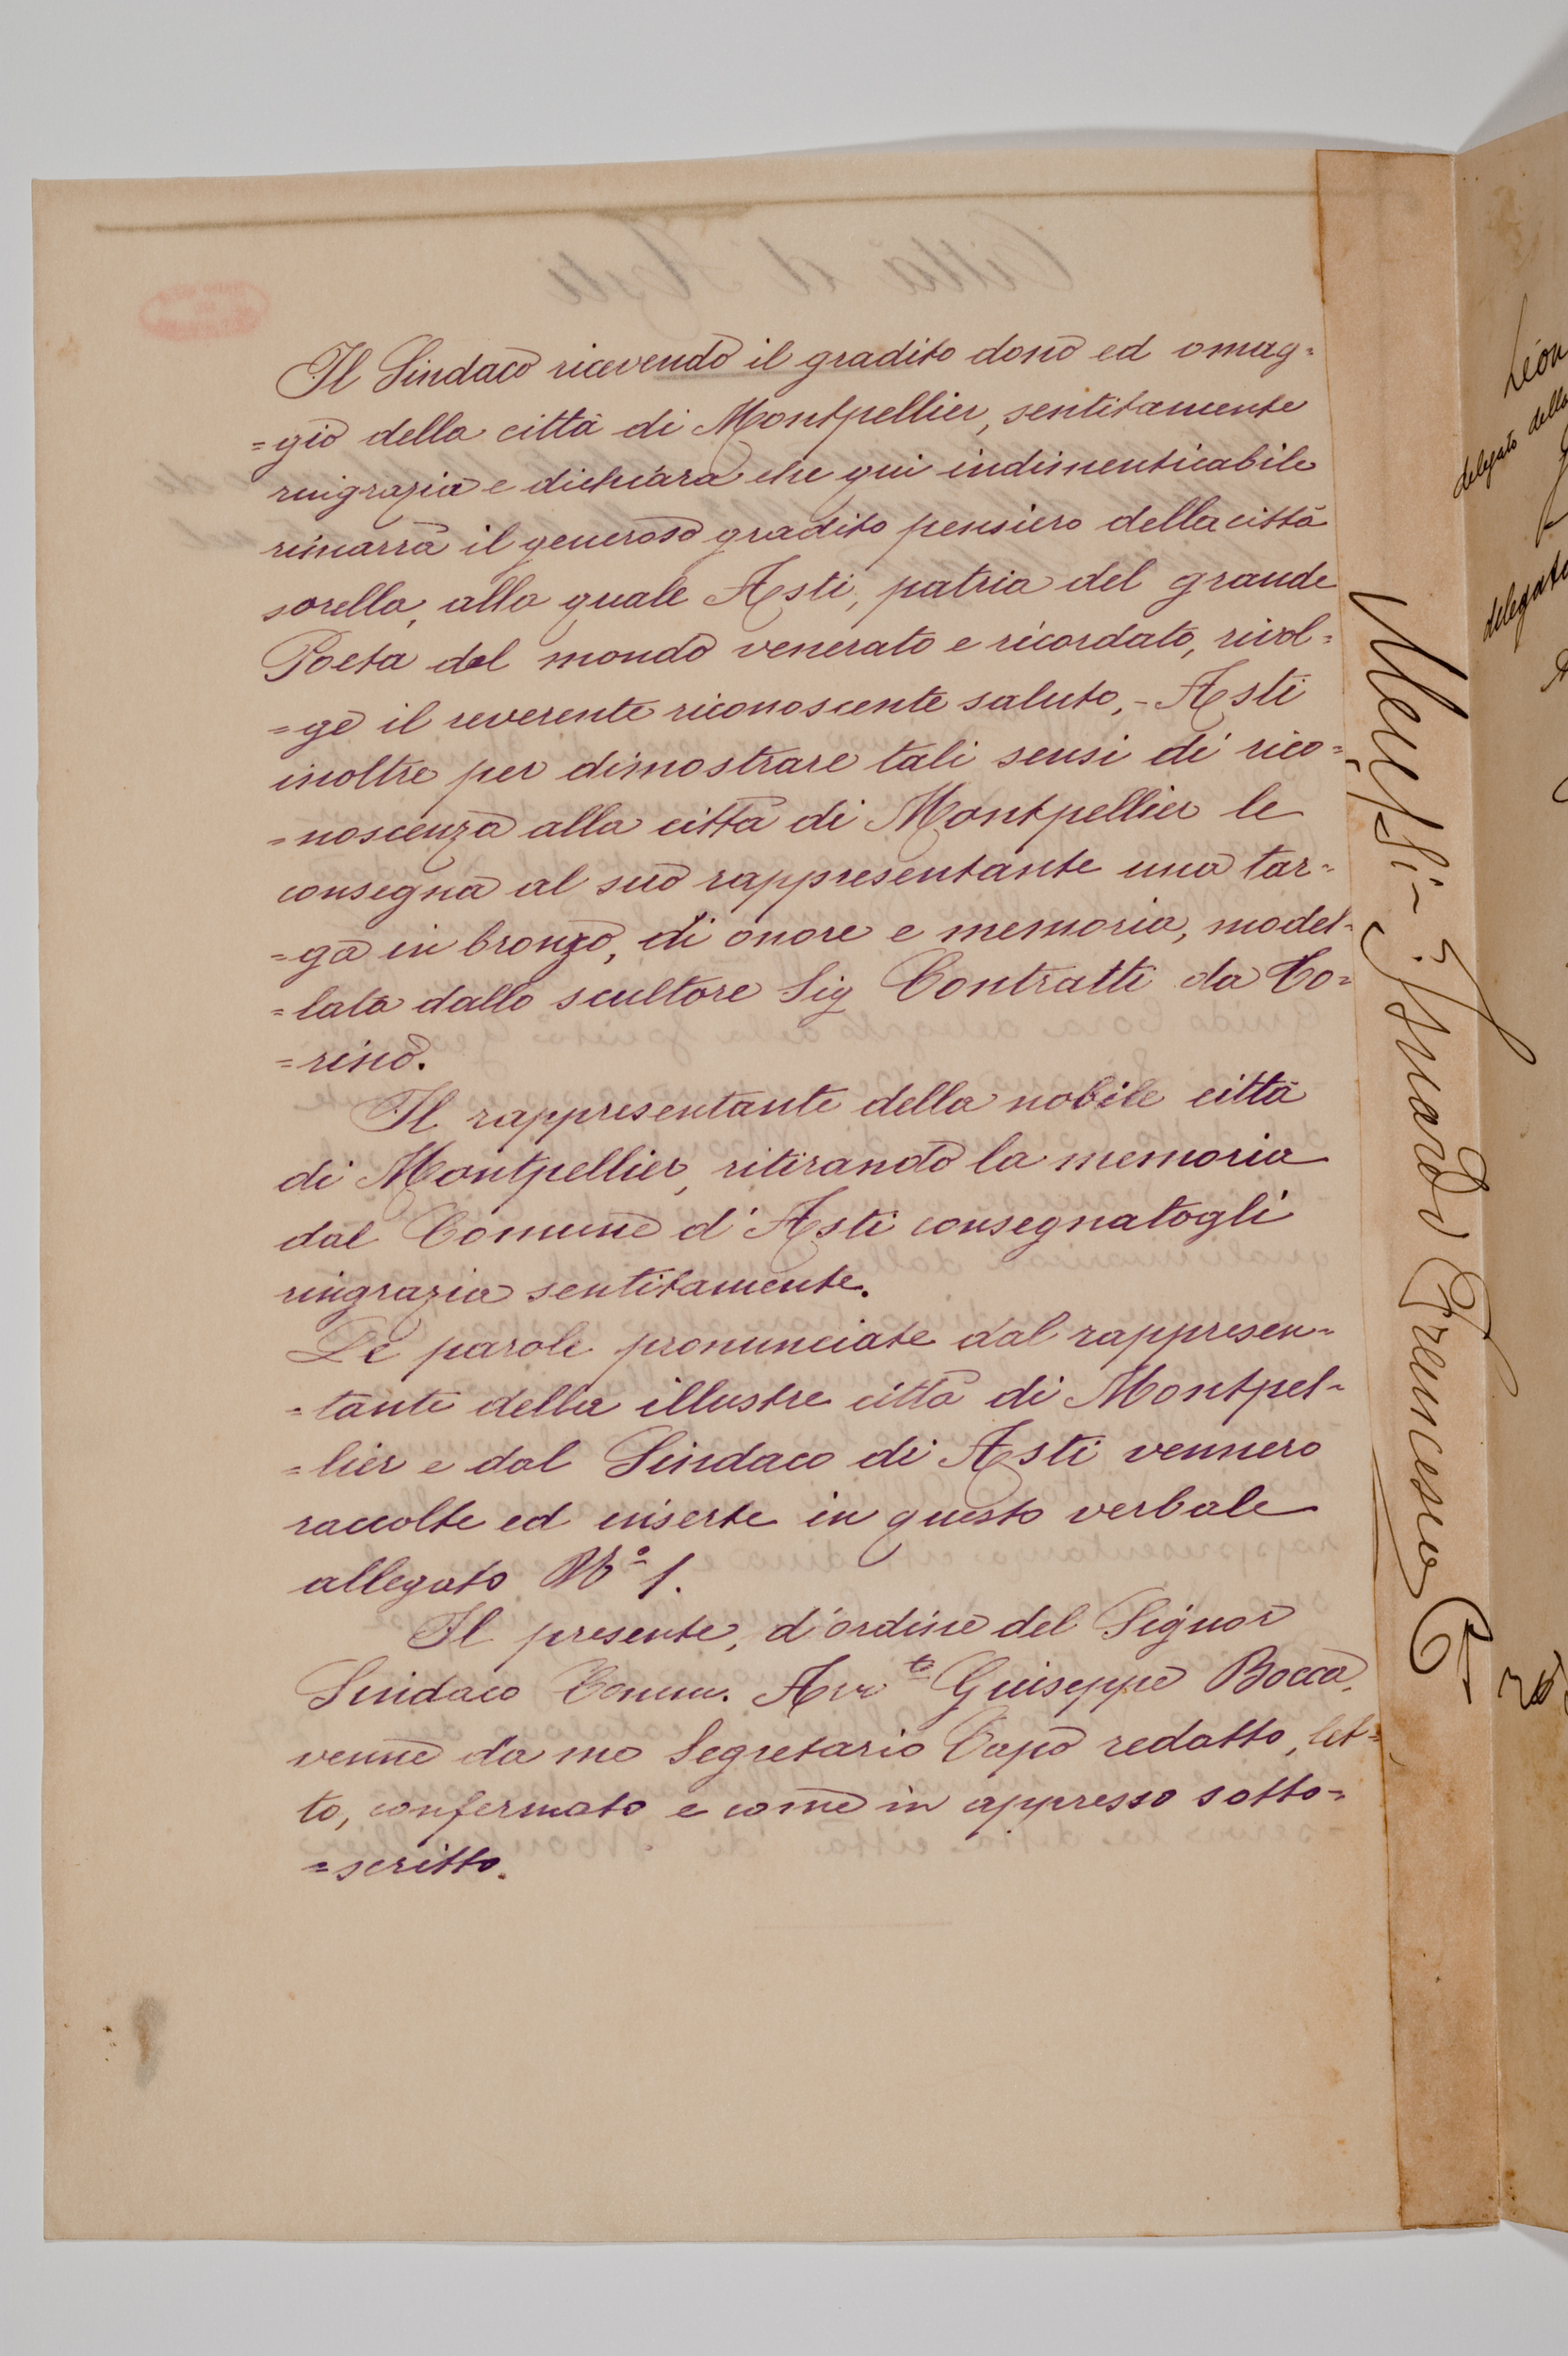 Il Sindaco ricevendo il gradito dono ed omag=
=gio della città di Montpellier, sentitamente
ringrazia e dichiara che qui indimenticabile
rimarrà il generoso gradito pensiero della città
sorella, alla quale Asti, patria del grande
Poeta dal mondo venerato e ricordato, rivol=
=ge il reverente riconoscente saluto,- Asti
inoltre per dimostrare tali sensi di rico=
=noscenza alla città di Montpellier le
consegna al suo rappresentante una tar=
=ga in bronzo, di onore e memoria, model=
=lata dallo scultore Sig Contratti da To=
=rino.
Il rappresentante della nobile città
di Montpellier, ritirando la memoria
dal Comune d'Asti consegnatogli
ringrazia sentitamente.
Le parole pronunciate dal rappresen=
=tante della illustre città di Montpel=
=lier e dal Sindaco di Asti vennero
raccolte ed inserte in questo verbale
allegato Nº 1.
Il presente, d'ordine del Signor
Sindaco Comm. Avv to Giuseppe Bocca,
venne da me Segretario Capo redatto, let=
to, confermato e come in appresso sotto=
=scritto.
Francesco
Léon
delegato della
delegato